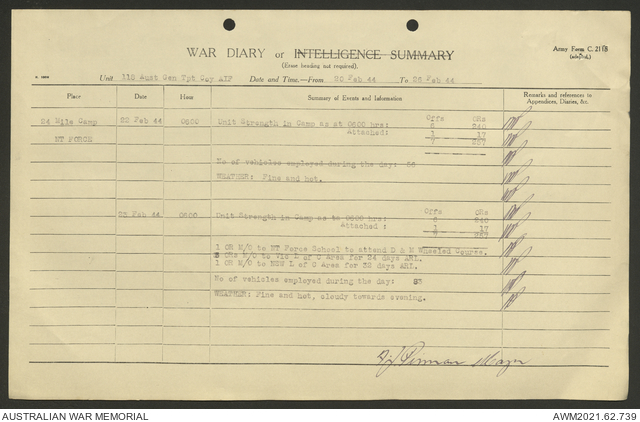 WAR DIARY or INTELLIGENCE SUMMARY
(Erase heading not required).
Army Form C. 2118
(adapted.)
Unit 112 Aust Gen Tpt Coy AIF Date and Time.—From 20 Feb 44 To 26 Feb 44
Place Date Hour Summary of Events and Information Remarks and references to Appendices, Diaries, &c.
Offs ORs
Mile Camp 22 Feb 44 0600 Unit Strength in Camp as at 0600 hrs: 6 240
Attached: 1 17
NT FORCE 7 257
No of vehicles employed during the day:
WEATHER: Fine and hot.
Offs ORs
Feb 44 0600 Unit Strength in Camp as to 0600 hrs: 6 240
Attached: 1 17
7 257
1 OR M/O to NT Force School to attend D & M Wheeled Course.
ORs M/O to Vic L of C Area for 24 days ARL.
1 OR M/O to NSW L of C Area for 32 days ARL.
No of vehicles employed during the day: 83
WEATHER: Fine and hot, cloudy towards evening.
Major
AUSTRALIAN WAR MEMORIAL AWM2021.62.739